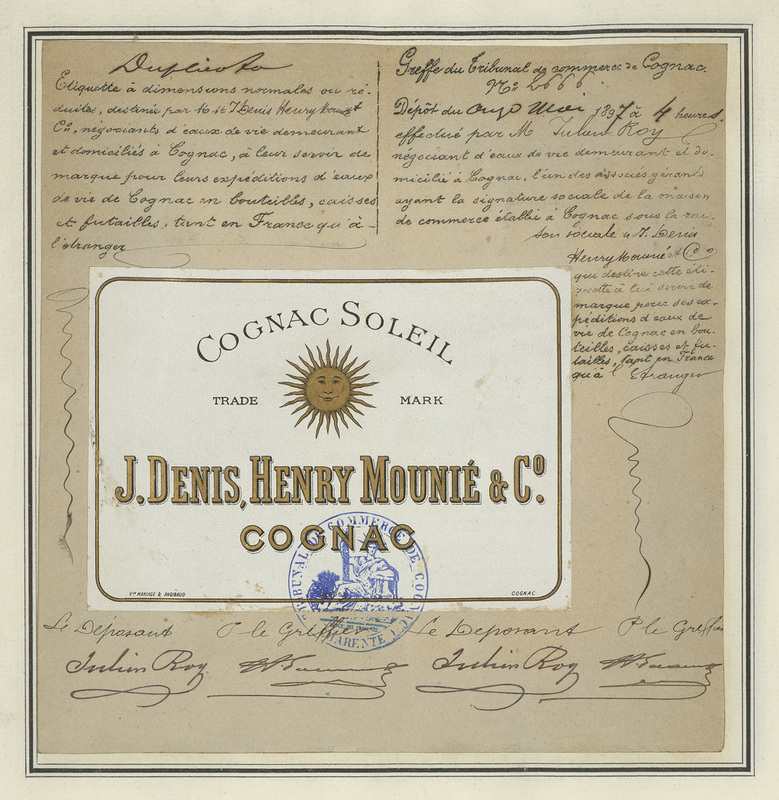 Duplicata
Etiquette à dimensions normales ou ré-
duites, destinée par M.rs J. Denis Henry Mounié &
Cº, négociants d'eaux de vie demeurant
et domiciliés à Cognac, à leur servir de
marque pour leurs expéditions d'eaux
de vie de Cognac en bouteilles, caisses
et futailles, tant en France qu'à-
l'étranger
Greffe du Tribunal de commerce de Cognac.
Nº 2666.
Dépôt du onze Mai 1897 à 4 heures
effectué par M. Julien Roy
négociant d'eaux de vie demeurant et do-
micilié à Cognac, l'un des associés gérants
ayant la signature sociale de la maison
de commerce établie à Cognac sous la rai-
son sociale de J. Denis
Henry Mounié et Cº
qui destine cette éti-
quette à lui servir de
marque pour ses ex-
péditions d'eaux de
vie de Cognac en bou-
teilles, caisses et fu-
tailles, tant en France
qu'à l'Etranger
COGNAC SOLEIL
TRADE MARK
J. DENIS, HENRY MOUNIÉ & Cº.
COGNAC
Vve MARIAGE & RAIMBAUD
COGNAC
TRIBUNAL DE COMMERCE DE COGNAC
CHARENTE
Le Déposant P. le Greffier Le Déposant P. le Greffier
Julien Roy Julien Roy